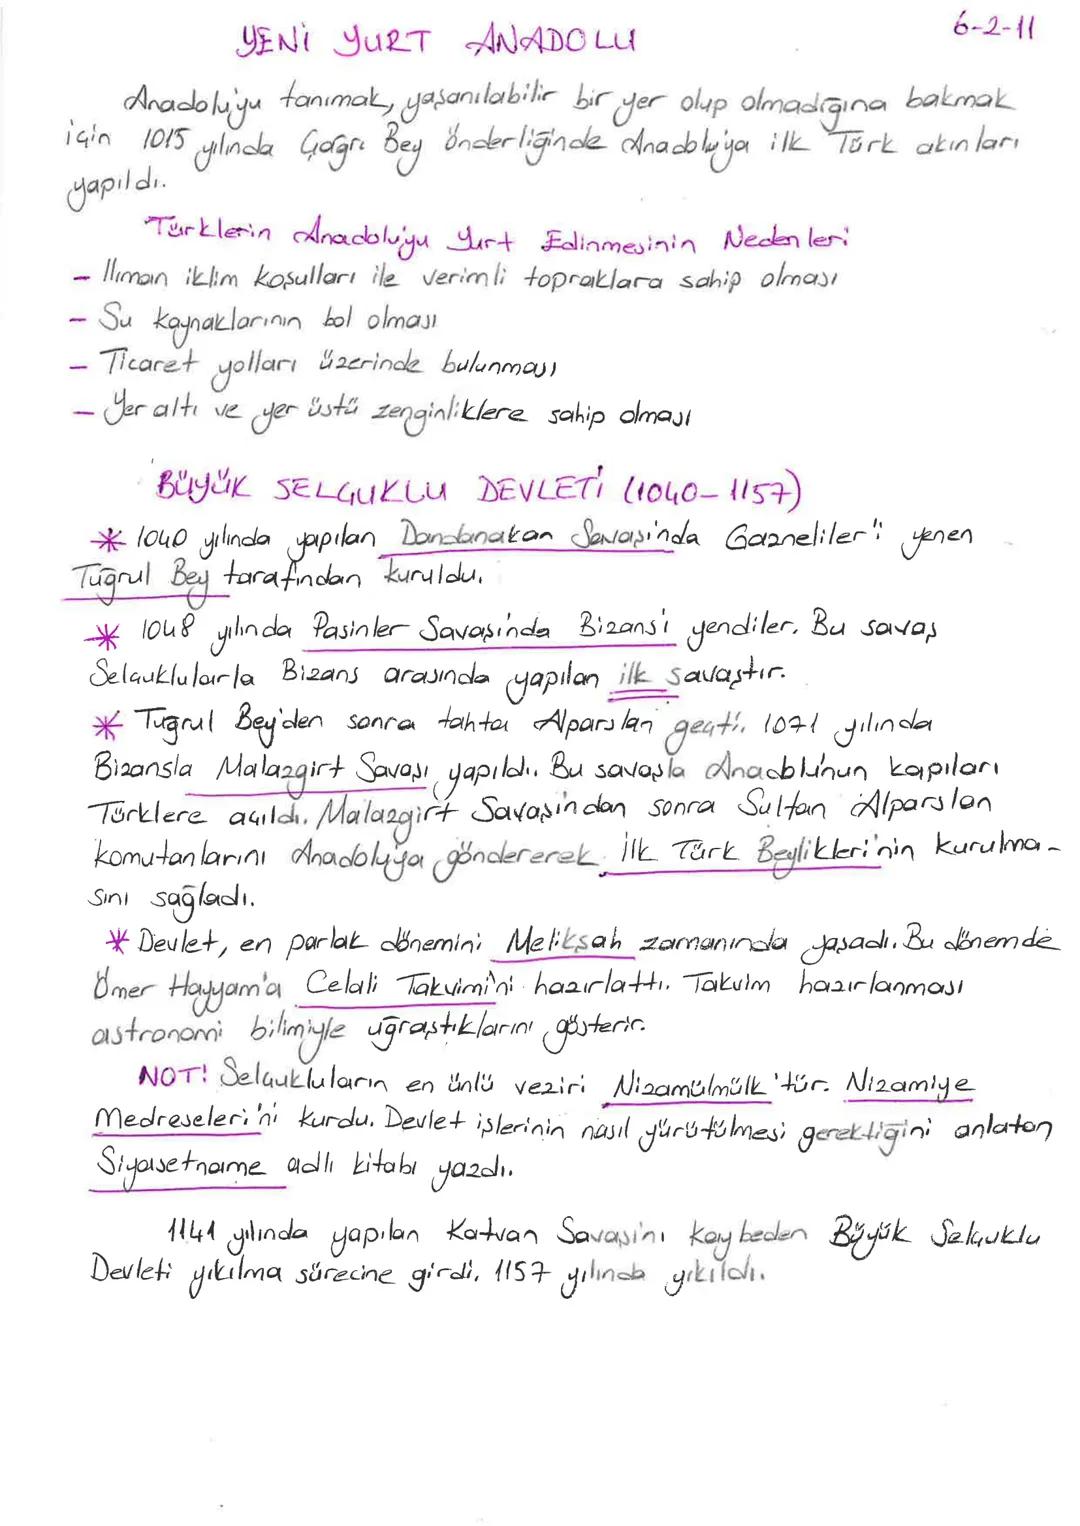 6-2-11
YENİ YURT ANADOLU
Anadolu'yu tanımak, yaşanılabilir bir yer olup olmadığına bakmak
için 1015 yılında Çağrı Bey önderliğinde Anadolu'ya ilk Türk akınları
yapıldı.
Türklerin Anadolu'yu Yurt Edinmesinin Nedenleri
- Ilıman iklim koşulları ile verimli topraklara sahip olması
- Su kaynaklarının bol olması
- Ticaret yolları üzerinde bulunması
- Yer altı ve yer üstü zenginliklere sahip olması
BÜYÜK SELÇUKLU DEVLETİ (1040-1157)
* 1040 yılında yapılan Dandanakan Savaşı'nda Gazneliler'i yenen
Tuğrul Bey tarafından kuruldu.
* 1048 yılında Pasinler Savaşı'nda Bizans'ı yendiler. Bu savaş
Selçuklularla Bizans arasında yapılan ilk savaştır.
* Tuğrul Bey'den sonra tahta Alparslan geçti. 1071 yılında
Bizansla Malazgirt Savaşı yapıldı. Bu savaşla Anadolu'nun kapıları
Türklere açıldı. Malazgirt Savaşından sonra Sultan Alparslan
komutanlarını Anadolu'ya göndererek İlk Türk Beylikleri'nin kurulma-
sını sağladı.
* Devlet, en parlak dönemini Melikşah zamanında yaşadı. Bu dönemde
Ömer Hayyam'a Celali Takvimi'ni hazırlattı. Takvim hazırlanması
astronomi bilimiyle uğraştıklarını gösterir.
NOT! Selçukluların en ünlü veziri Nizamülmülk'tür. Nizamiye
Medreseleri'ni kurdu. Devlet işlerinin nasıl yürütülmesi gerektiğini anlatan
Siyasetname adlı kitabı yazdı.
1141 yılında yapılan Katvan Savaşını kaybeden Büyük Selçuklu
Devleti yıkılma sürecine girdi. 1157 yılında yıkıldı.